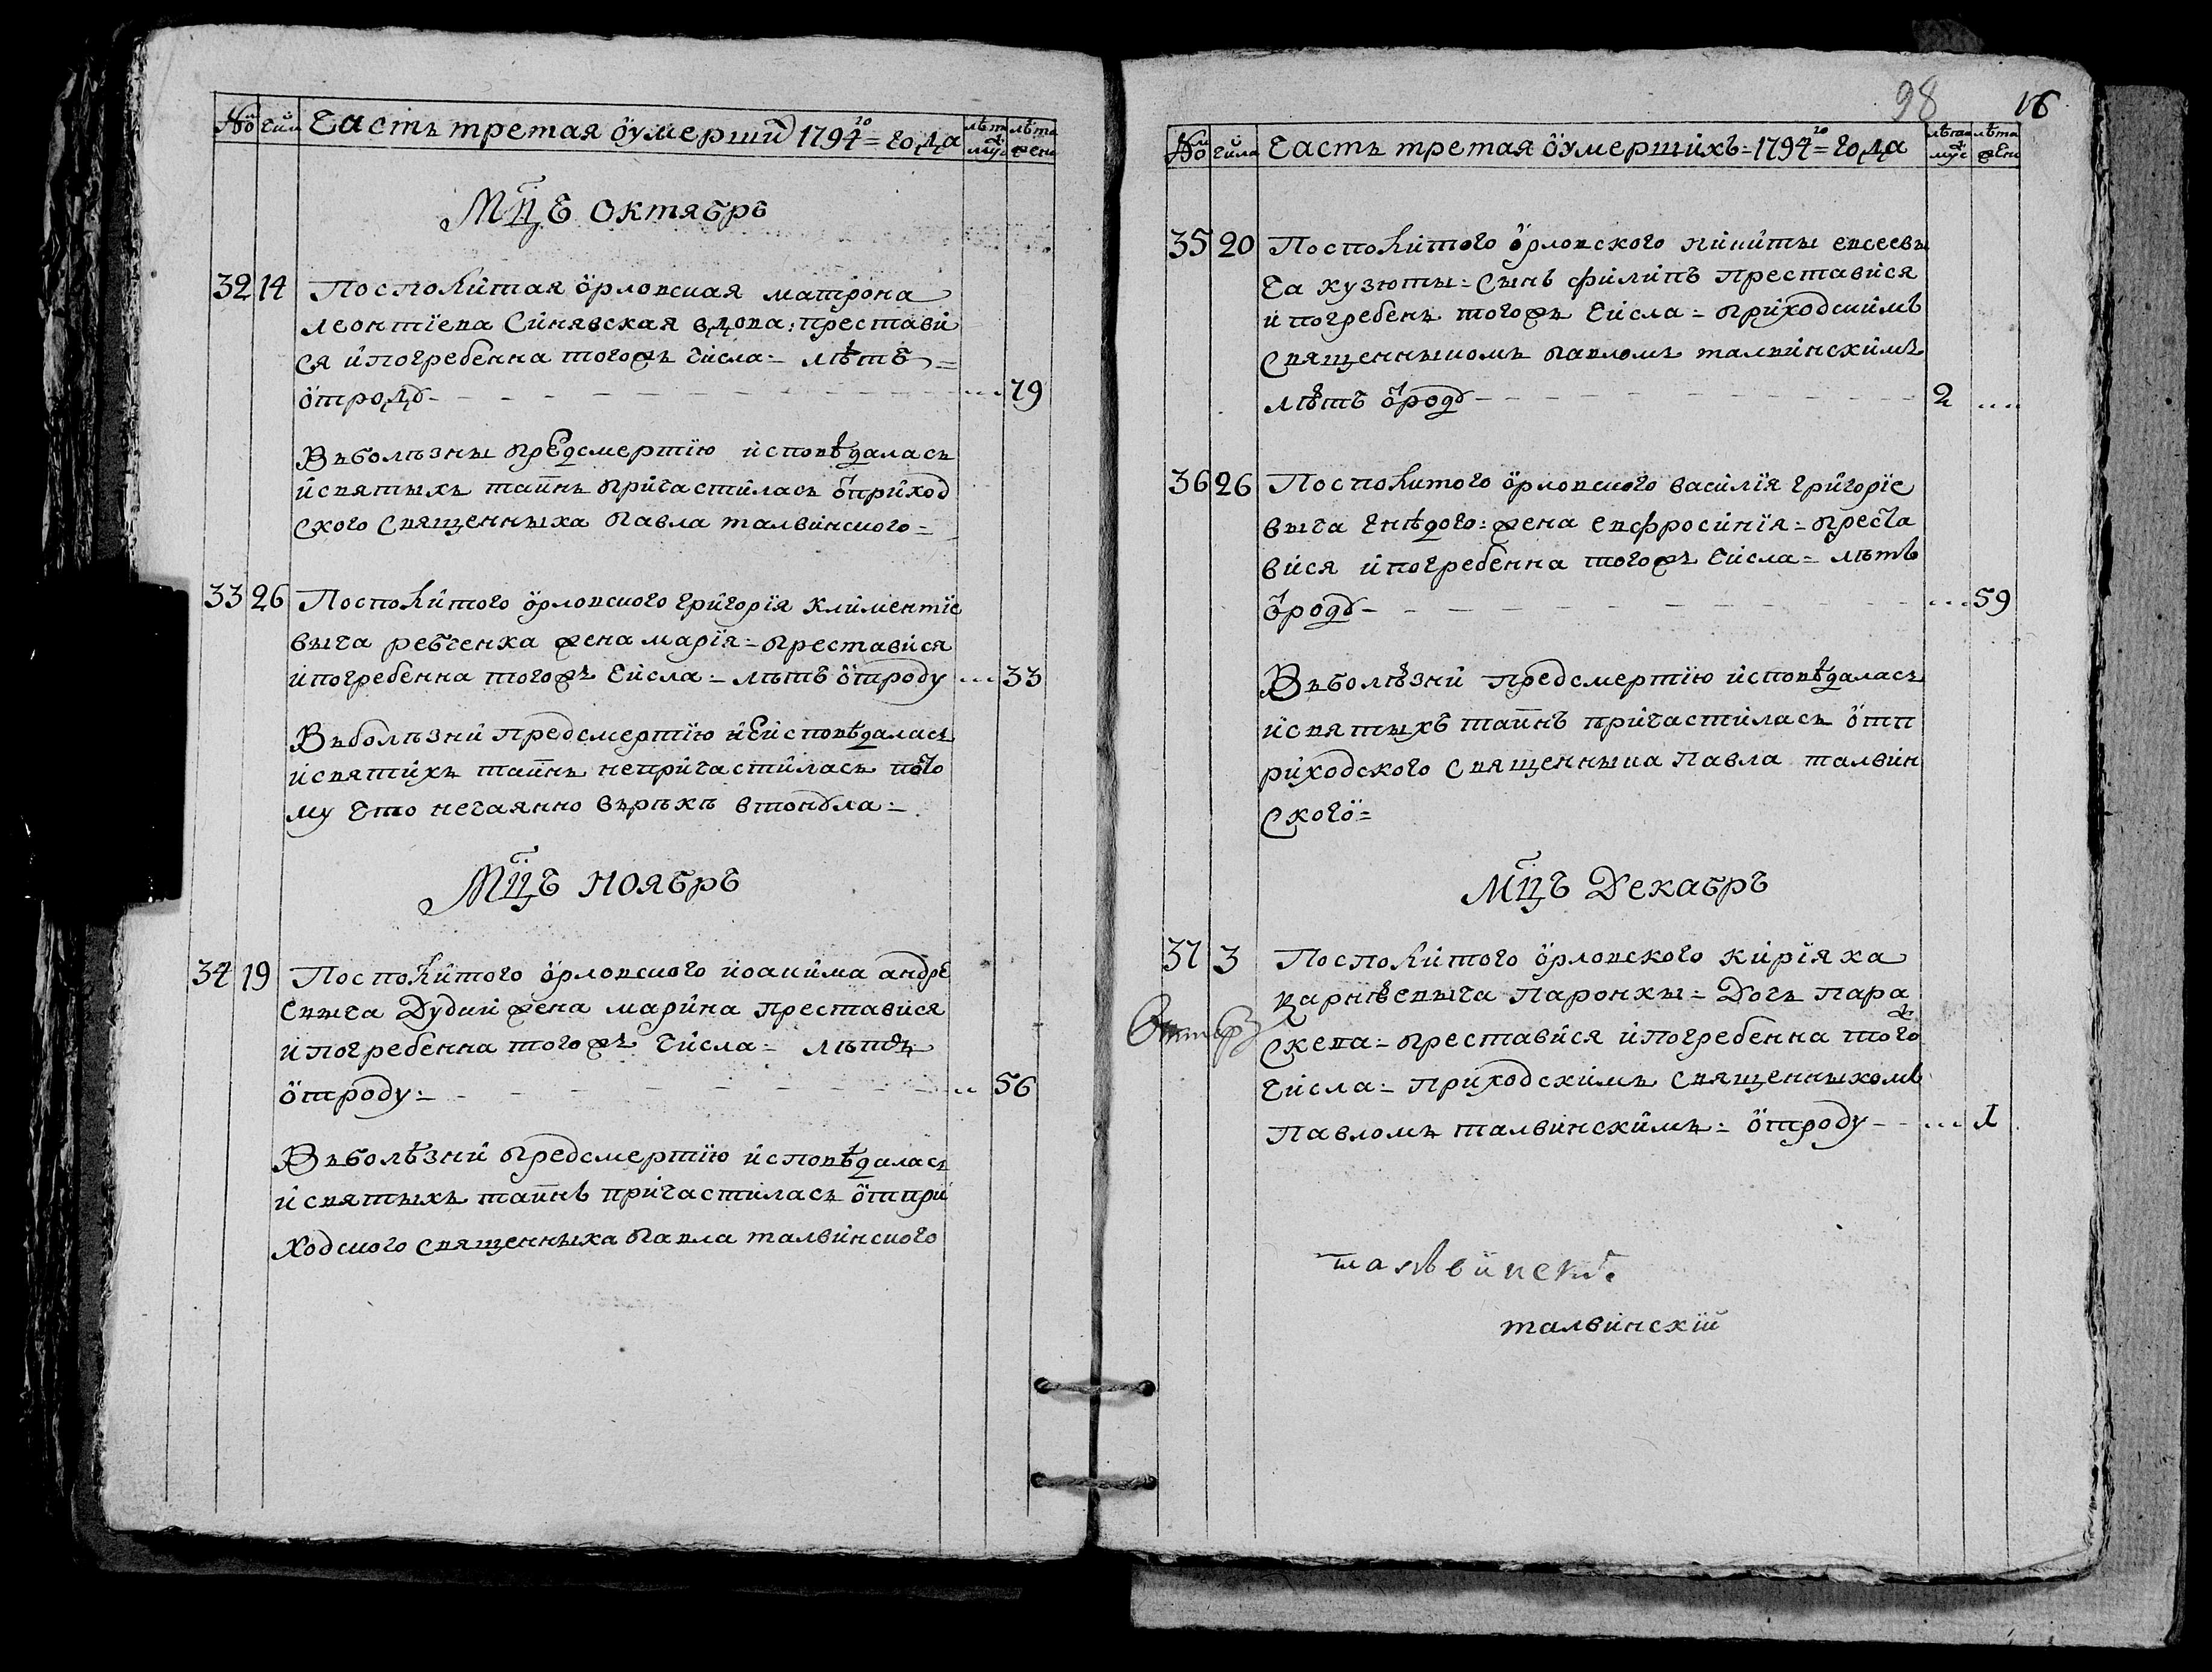 № числ Часть третая ѿумерших 1794го= года лѣта муж лѣта жена
Мцъ октябръ
32 14 Посполитая ѡрловская матрона
леонтїева Синявская вдова: престави
ся ипогребенна тогожъ числа= лѣтъ=
ѿроду 79
Въболѣзны предсмертїю исповѣдалась
исвятыхъ таинъ причастилась ѿприход
ского священныка Павла талвинского=
33 26 Посполитого ѡрловского григорїя климентїе
выча ребченка жена марїя= преставися
ипогребенна тогожъ числа= лѣтъ ѿроду 33
Въболѣзни предсмертїю неисповѣдалась
исвятихъ таинъ непричастилась пото
му что нечаянно върѣкѣ втонула=
Мцъ ноябръ
34 19 Посполитого ѡрловского иоакима андре
евыча Дудки жена марина преставися
ипогребенна тогожъ числа= лѣтъ
ѿроду= 56
Въболѣзни предсмертїю исповѣдалась
исвятыхъ таинъ причастилась ѿпри
ходского священныка Павла талвинского
98 16
№ числа Часть третая ѿумершихъ=1794го= года лѣта муж лѣта жен
35 20 Посполитого ѡрловского никиты евсеевы
ча кузюты= сынъ филипъ преставися
ипогребенъ тогожъ числа= приходскимъ
Священныкомъ павломъ талвинскимъ
лѣтъ ѿроду 2
36 26 Посполитого ѡрловского василїя григорїе
выча гнѣдого: жена евфросинїя= преста
вися ипогребенна тогожъ числа= лѣтъ
ѿроду 59
Въболѣзни предсмертїю исповѣдалась
исвятыхъ таинъ причастилась ѿп
риходского священныка Павла талвин
ского=
Мцъ Декабръ
37 3 Посполитого ѡрловского кирїяка
карнѣевыча Паронкы= Дочь пара
скева= преставися ипогребенна тогож
числа= приходскимъ священныкомъ
Павломъ талвинскимъ= ѿроду 1
талвински
талвинскїй